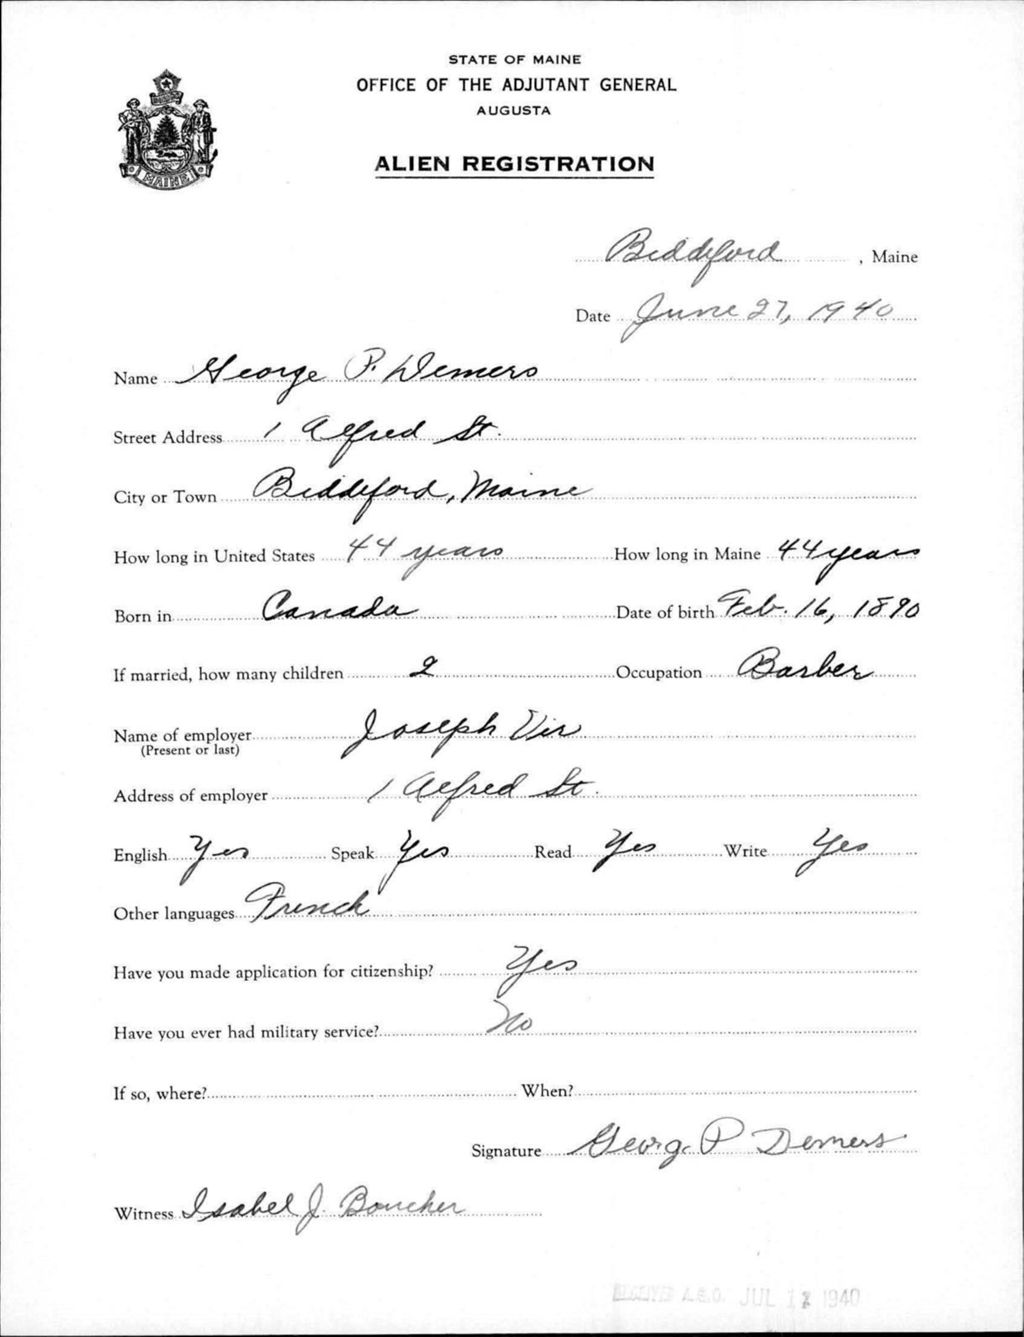 STATE OF MAINE
OFFICE OF THE ADJUTANT GENERAL
AUGUSTA
ALIEN REGISTRATION
MAINE
Biddeford, Maine
Date June 27, 1940
Name George P. Demers
Street Address 1 Alfred St.
City or Town Biddeford, Maine
How long in United States 44 years How long in Maine 44 years
Born in Canada Date of birth Feb. 16, 1890
If married, how many children 2 Occupation Barber
Name of employer Joseph
(Present or last)
Address of employer 1 Alfred St.
English Yes Speak Yes Read Yes Write Yes
Other languages French
Have you made application for citizenship? Yes
Have you ever had military service? No
If so, where? When?
Signature George P Demers
Witness Isabel J. Boucher
A.G.O. JUL 1940